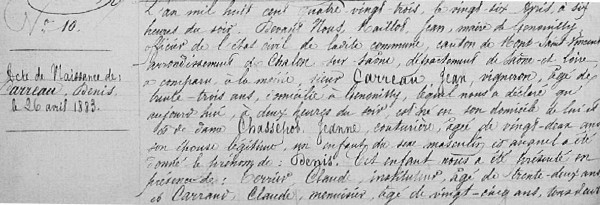 N° 10.
Acte de Naissance de
Carreau, Denis.
le 26 avril 1883.
L'an mil huit cent quatre vingt trois, le vingt-six avril, à six
heures du soir. Devant Nous, Maillot, Jean, maire de Genouilly
officier de l'état civil de ladite commune, canton de Mont-Saint-Vincent
arrondissement de Chalon sur Saône, département de Saône-et-Loire,
a comparu à la mairie, sieur Carreau Jean, vigneron, âgé de
trente-trois ans, domicilié à Genouilly, lequel nous a déclaré qu'
aujourd'hui, à deux heures du soir, est né en son domicile de lui et
de dame Chassehot, Jeanne, couturière, âgée de vingt-deux ans
son épouse légitime, un enfant du sexe masculin, et auquel a été
donné le prénom de: Denis. Cet enfant nous a été présenté en
présence de: Perrier Claude, instituteur, âgé de trente-deux ans
et Carreau, Claude, menuisier, âgé de vingt-cinq ans, tous deux